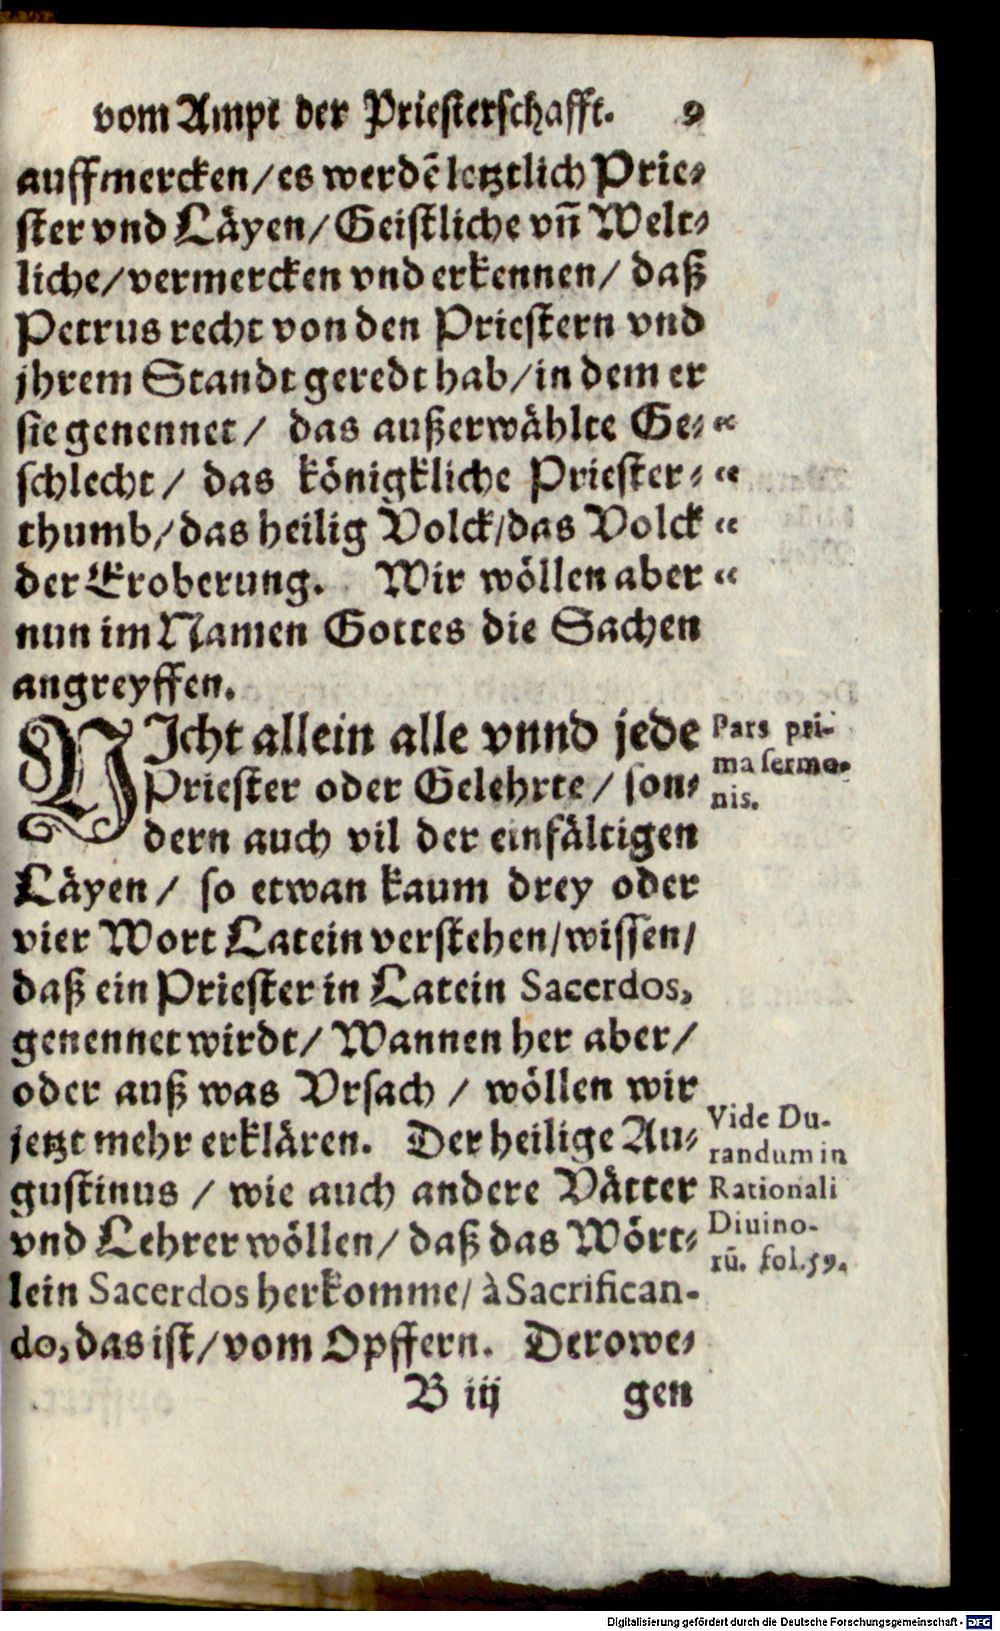 vom Ampt der Priesterschafft. 9
auffmercken/es werdē letztlich Prie⸗
ster vnd Läyen/Geistliche vñ Welt⸗
liche/vermercken vnd erkennen/ daß
Petrus recht von den Priestern vnd
jhrem Standt geredt hab/in dem er
sie genennet/ das außerwählte Ge⸗ “
schlecht/ das königkliche Priester⸗ “
thumb/das heilig Volck/das Volck “
der Eroberung. Wir wöllen aber “
nun im Namen Gottes die Sachen
angreyffen.
NIcht allein alle vnnd jede
Priester oder Gelehrte/ son⸗
dern auch vil der einfältigen
Läyen/ so etwan kaum drey oder
vier Wort Latein verstehen/wissen/
daß ein Priester in Latein Sacerdos,
genennet wirdt/ Wannen her aber/
oder auß was Vrsach / wöllen wir
jetzt mehr erklären. Der heilige Au⸗
gustinus / wie auch andere Vätter
vnd Lehrer wöllen/ daß das Wört⸗
lein Sacerdos herkomme/ à Sacrifican-
do, das ist/vom Opffern. Derowe⸗
B iij gen
Pars pri-
ma sermo-
nis.
Vide Du-
randum in
Rationali
Diuino-
rū. fol. 59.
Digitalisierung gefördert durch die Deutsche Forschungsgemeinschaft - DFG